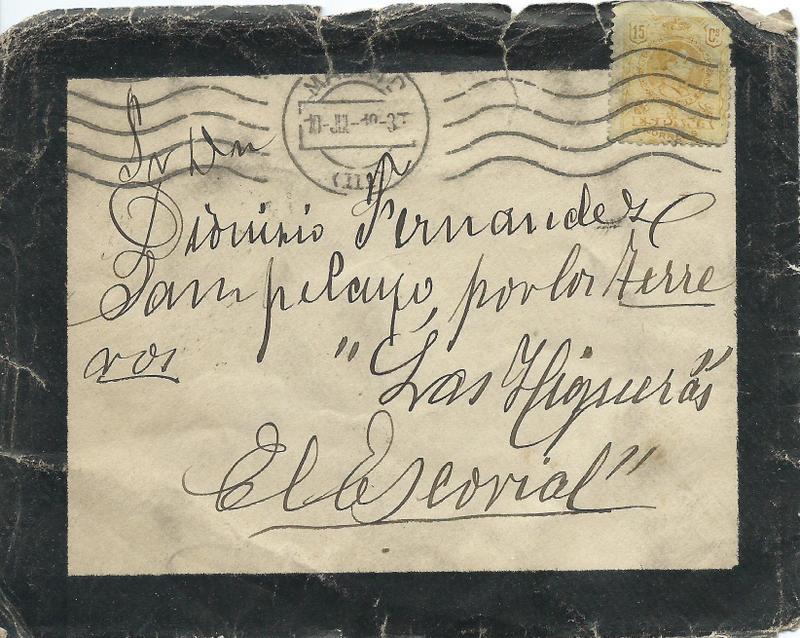 15 Cs
MADRID
(11)
Sr Dn
Dionisio Fernandez
Sampelayo, por los Herre
ros "Las Higueras
El Escorial"